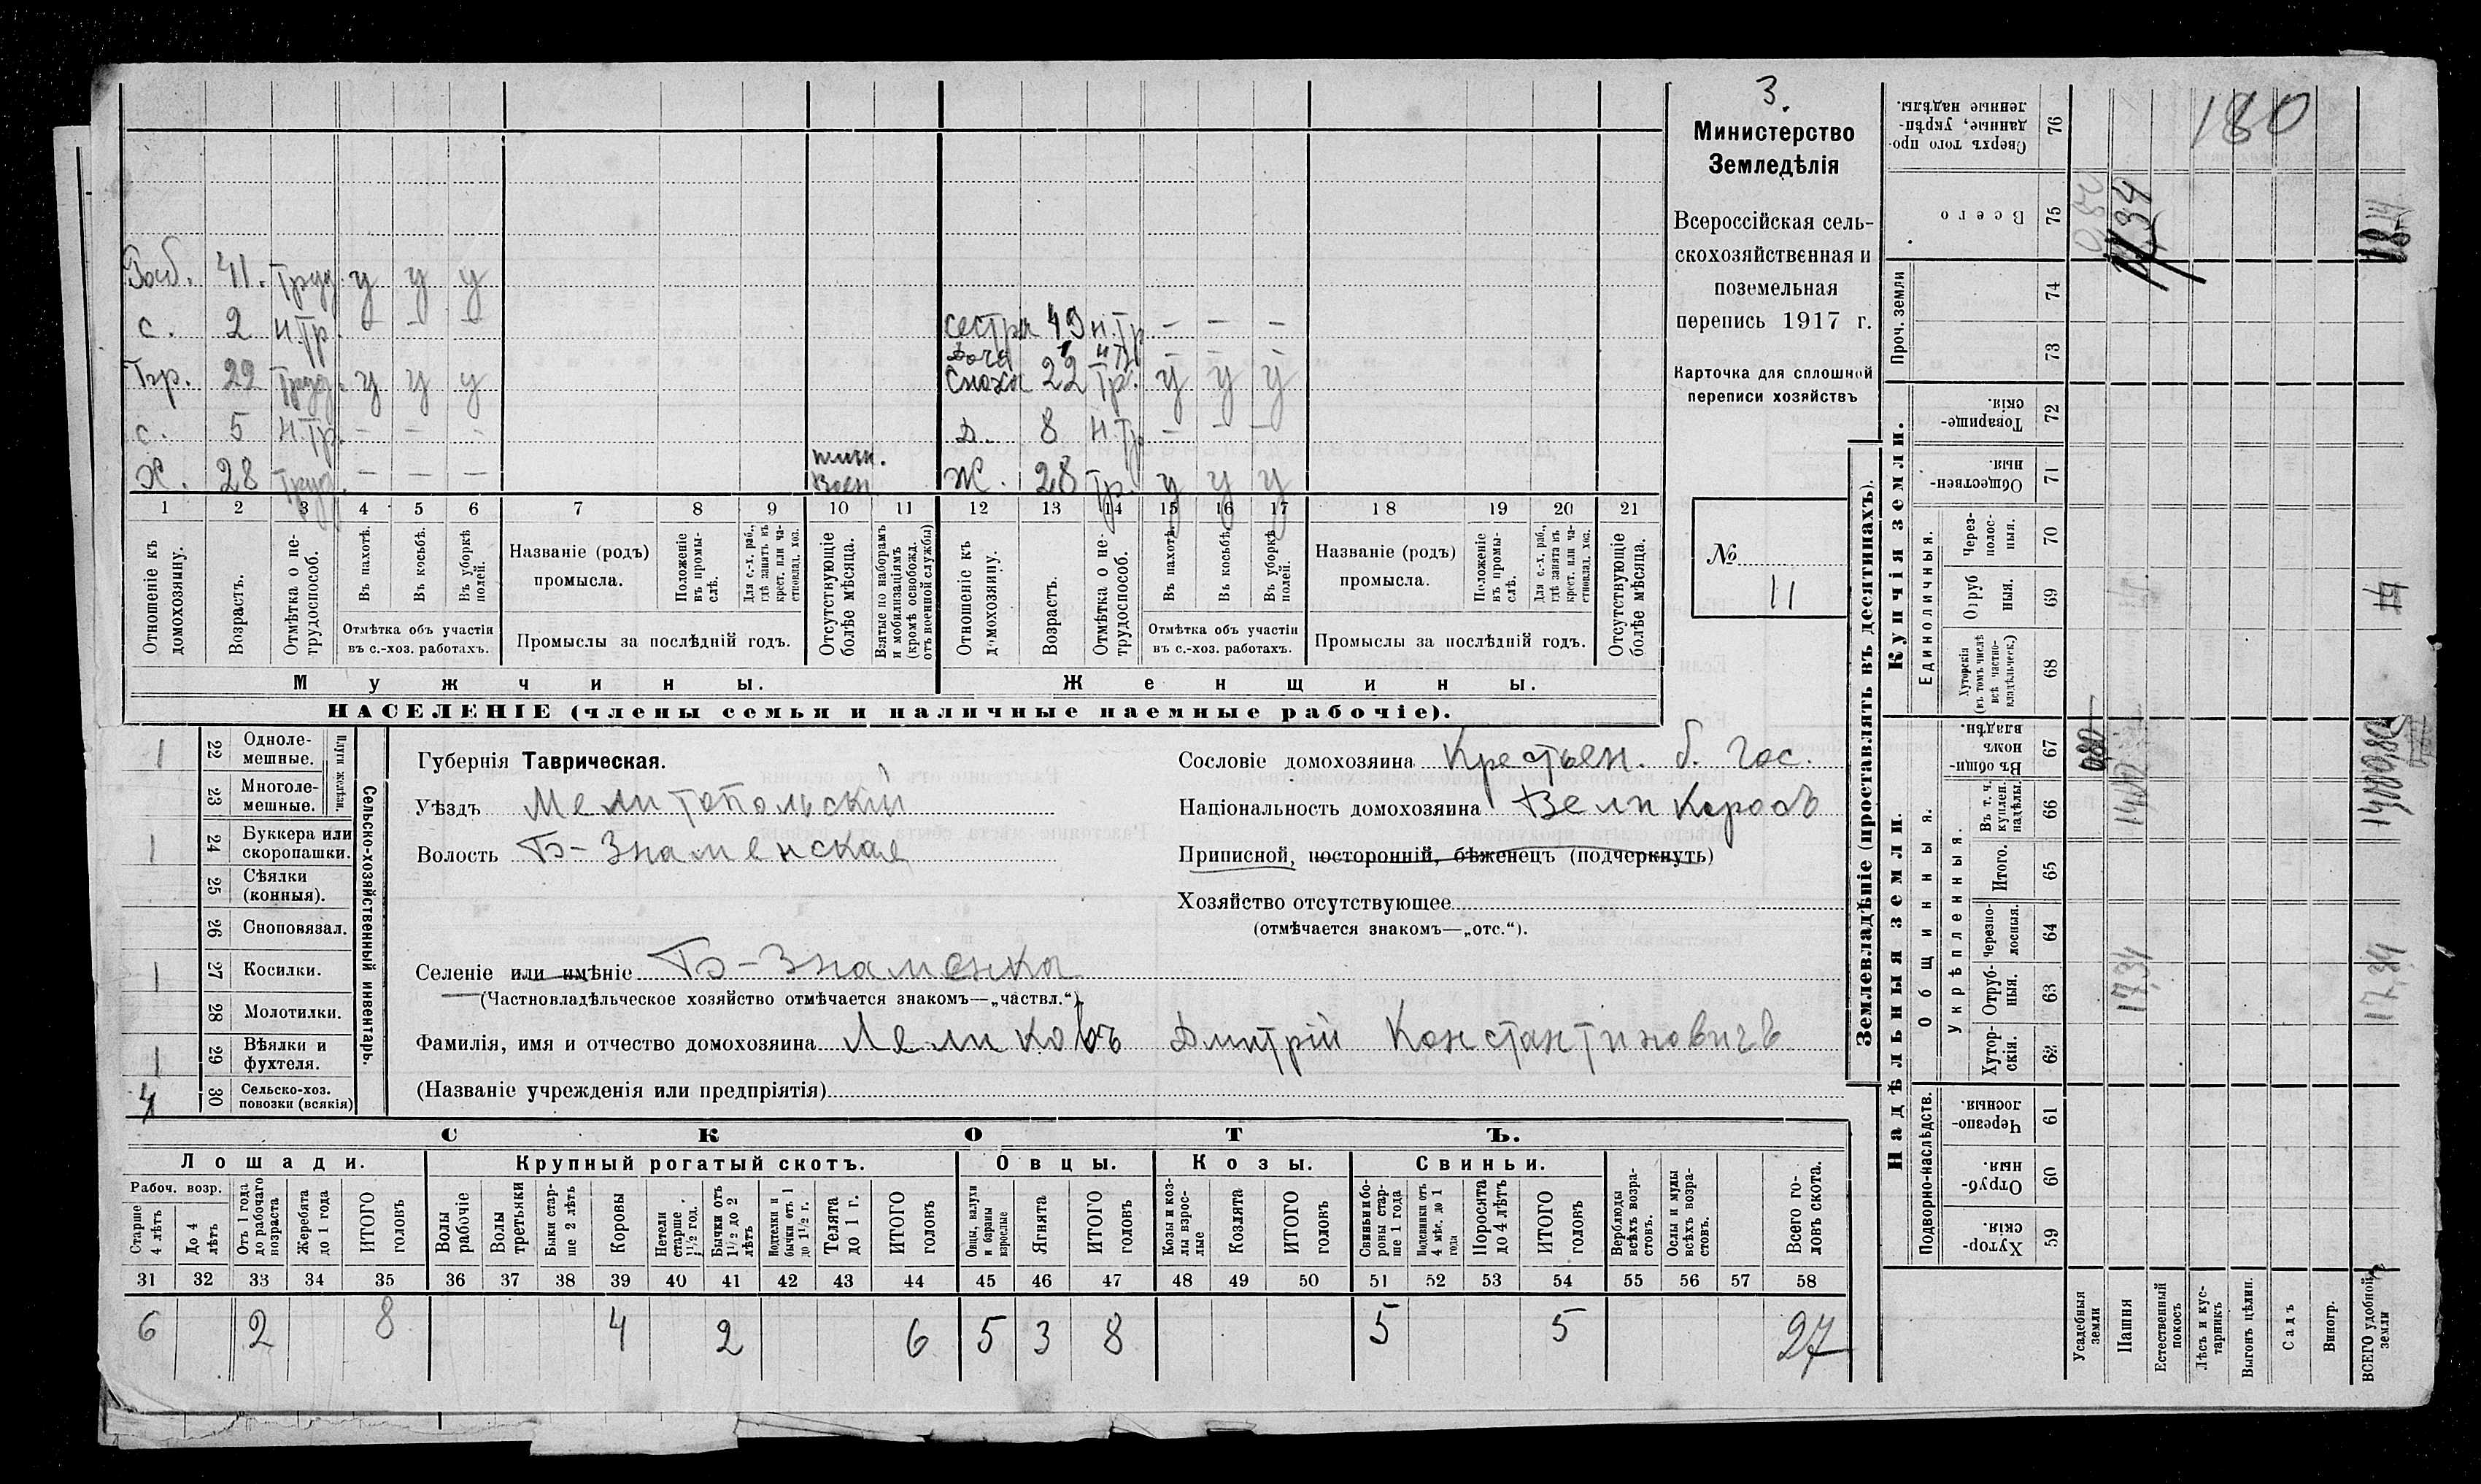 3.
180
Министерство
Земледѣлія
Всероссійская сель-
скохозяйственная и
поземельная
перепись 1917 г.
Карточка для сплошной
переписи хозяйствъ
№
11
41. Труд. у у у
с. 2 н.тр. – – –
сестра 49 н.тр – – –
дочь 1 н.тр – – –
22 труд. у у у
сноха 22 тр. у у у
с. 5 н.тр. – – –
д. 8 н.тр – – –
Х. 28 труд. – – – воен
Ж. 28 тр. у у у
1 2 3 4 5 6 7 8 9 10 11 12 13 14 15 16 17 18 19 20 21
Отношеніе къ домохозяину.
Возрастъ.
Отмѣтка о не-трудоспособ.
Въ пахотѣ.
Въ косьбѣ.
Въ уборкѣ полей.
Отмѣтка объ участіи
въ с.-хоз. работахъ.
Названіе (родъ)
промысла.
Положеніе въ промы-слѣ.
Для с.-х. раб., гдѣ занятъ въ крест. или ча-стновлад. хоз.
Промыслы за послѣдній годъ.
Отсутствующіе болѣе мѣсяца.
Взятые по наборамъ и мобилизаціямъ (кромѣ освобожд. отъ военной службы)
Отношеніе къ домохозяину.
Возрастъ.
Отмѣтка о не-трудоспособ.
Въ пахотѣ.
Въ косьбѣ.
Въ уборкѣ полей.
Отмѣтка объ участіи
въ с.-хоз. работахъ.
Названіе (родъ)
промысла.
Положеніе въ промы-слѣ.
Для с.-х. раб., гдѣ занята въ крест. или ча-стновлад. хоз.
Промыслы за послѣдній годъ.
Отсутствующіе болѣе мѣсяца.
Мужчины.
Женщины.
НАСЕЛЕНІЕ (члены семьи и наличные наемные рабочіе).
Сельско-хозяйственный инвентарь.
Плуги желѣзн.
1 22 Одноле-мешные.
23 Многоле-мешные.
1 24 Буккера или скоропашки.
25 Сѣялки (конныя).
26 Сноповязал.
1 27 Косилки.
28 Молотилки.
1 29 Вѣялки и фухтеля.
4 30 Сельско-хоз. повозки (всякія)
Губернія Таврическая.
Уѣздъ Мелитопольский
Волость Б-Знаменская
Селеніе или имѣніе Б-Знаменка
(Частновладѣльческое хозяйство отмѣчается знакомъ—„частвл.“)
Фамилія, имя и отчество домохозяина Леликовъ Дмитрій Константиновичъ
(Названіе учрежденія или предпріятія)
Сословіе домохозяина Крестьян. б. Гос.
Національность домохозяина Великороссъ
Приписной, посторонній, бѣженецъ (подчеркнуть)
Хозяйство отсутствующее
(отмѣчается знакомъ—„отс.“).
СКОТЪ.
Лошади.
Крупный рогатый скотъ.
Овцы.
Козы.
Свиньи.
Рабоч. возр.
Старше 4 лѣтъ
До 4 лѣтъ
Отъ 1 года до рабочаго возраста
Жеребята до 1 года
ИТОГО головъ
Волы рабочіе
Волы третьяки
Быки стар-ше 2 лѣтъ
Коровы
Нетели старше 1½ год.
Бычки отъ 1½ до 2 лѣтъ
Подтелки и бычки отъ 1 до 1½ г.
Телята до 1 г.
ИТОГО головъ
Овцы, валухи и бараны взрослые
Ягнята
ИТОГО головъ
Козы и коз-лы взрос-лые
Козлята
ИТОГО головъ
Свиньи и бо-ровы стар-ше 1 года
Подсвинки отъ 4 мѣс. до 1 года
Поросята до 4 лѣтъ
ИТОГО головъ
Верблюды всѣхъ возра-стовъ.
Ослы и мулы всѣхъ возра-стовъ.
Всего го-ловъ скота.
31 32 33 34 35 36 37 38 39 40 41 42 43 44 45 46 47 48 49 50 51 52 53 54 55 56 57 58
6 2 8 4 2 6 5 3 8 5 5 27
Землевладѣніе (проставлять въ десятинахъ).
Надѣльныя земли.
Купчія земли.
Проч. земли
Подворно-наслѣдств.
Общинныя.
Укрѣпленныя.
Единоличныя.
Сверхъ того про-данные, укрѣп-ленные надѣлы. 76
Всего 75
74
73
Товарище-скія. 72
Обществен-ныя. 71
Через-полос-ныя. 70
Отруб-ныя. 69
Хуторскія (въ томъ числѣ всѣ частно-владѣльческ.) 68
Въ общи-номъ владѣн. 67
Въ т. ч. куплен. надѣлы. 66
Итого. 65
Черезпо-лосныя. 64
Отруб-ныя. 63 17,34 17,34
Хутор-скія. 62
Черезпо-лосныя. 61
Отруб-ныя. 60
Хутор-скія. 59
Усадебныя земли
Пашня
Естественный покосъ
Лѣсъ и кус-тарникъ
Выгонъ цѣлин.
Садъ
Виногр.
ВСЕГО удобной земли